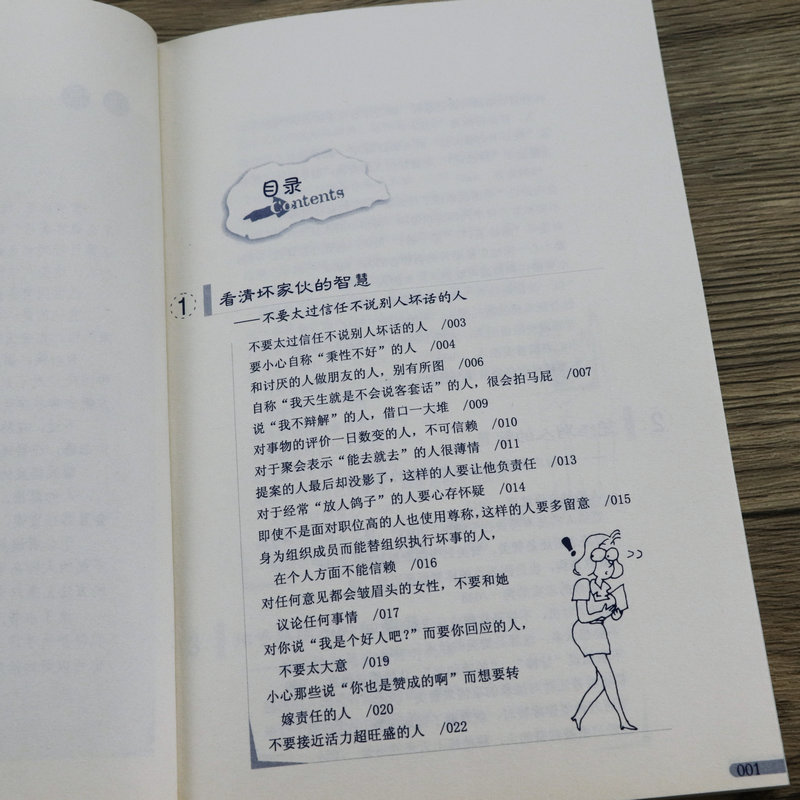 目录
Contents
1 看清坏家伙的智慧
——不要太过信任不说别人坏话的人
不要太过信任不说别人坏话的人 /003
要小心自称“秉性不好”的人 /004
和讨厌的人做朋友的人，别有所图 /006
自称“我天生就是不会说客套话”的人，很会拍马屁 /007
说“我不辩解”的人，借口一大堆 /009
对事物的评价一日数变的人，不可信赖 /010
对于聚会表示“能去就去”的人很薄情 /011
提案的人最后却没影了，这样的人要让他负责任 /013
对于经常“放人鸽子”的人要心存怀疑 /014
即使不是面对职位高的人也使用尊称，这样的人要多留意 /015
身为组织成员而能替组织执行坏事的人，
在个人方面不能信赖 /016
对任何意见都会皱眉头的女性，不要和她
议论任何事情 /017
对你说“我是个好人吧？”而要你回应的人，
不要太大意 /019
小心那些说“你也是赞成的啊”而想要转
嫁责任的人 /020
不要接近活力超旺盛的人 /022
001